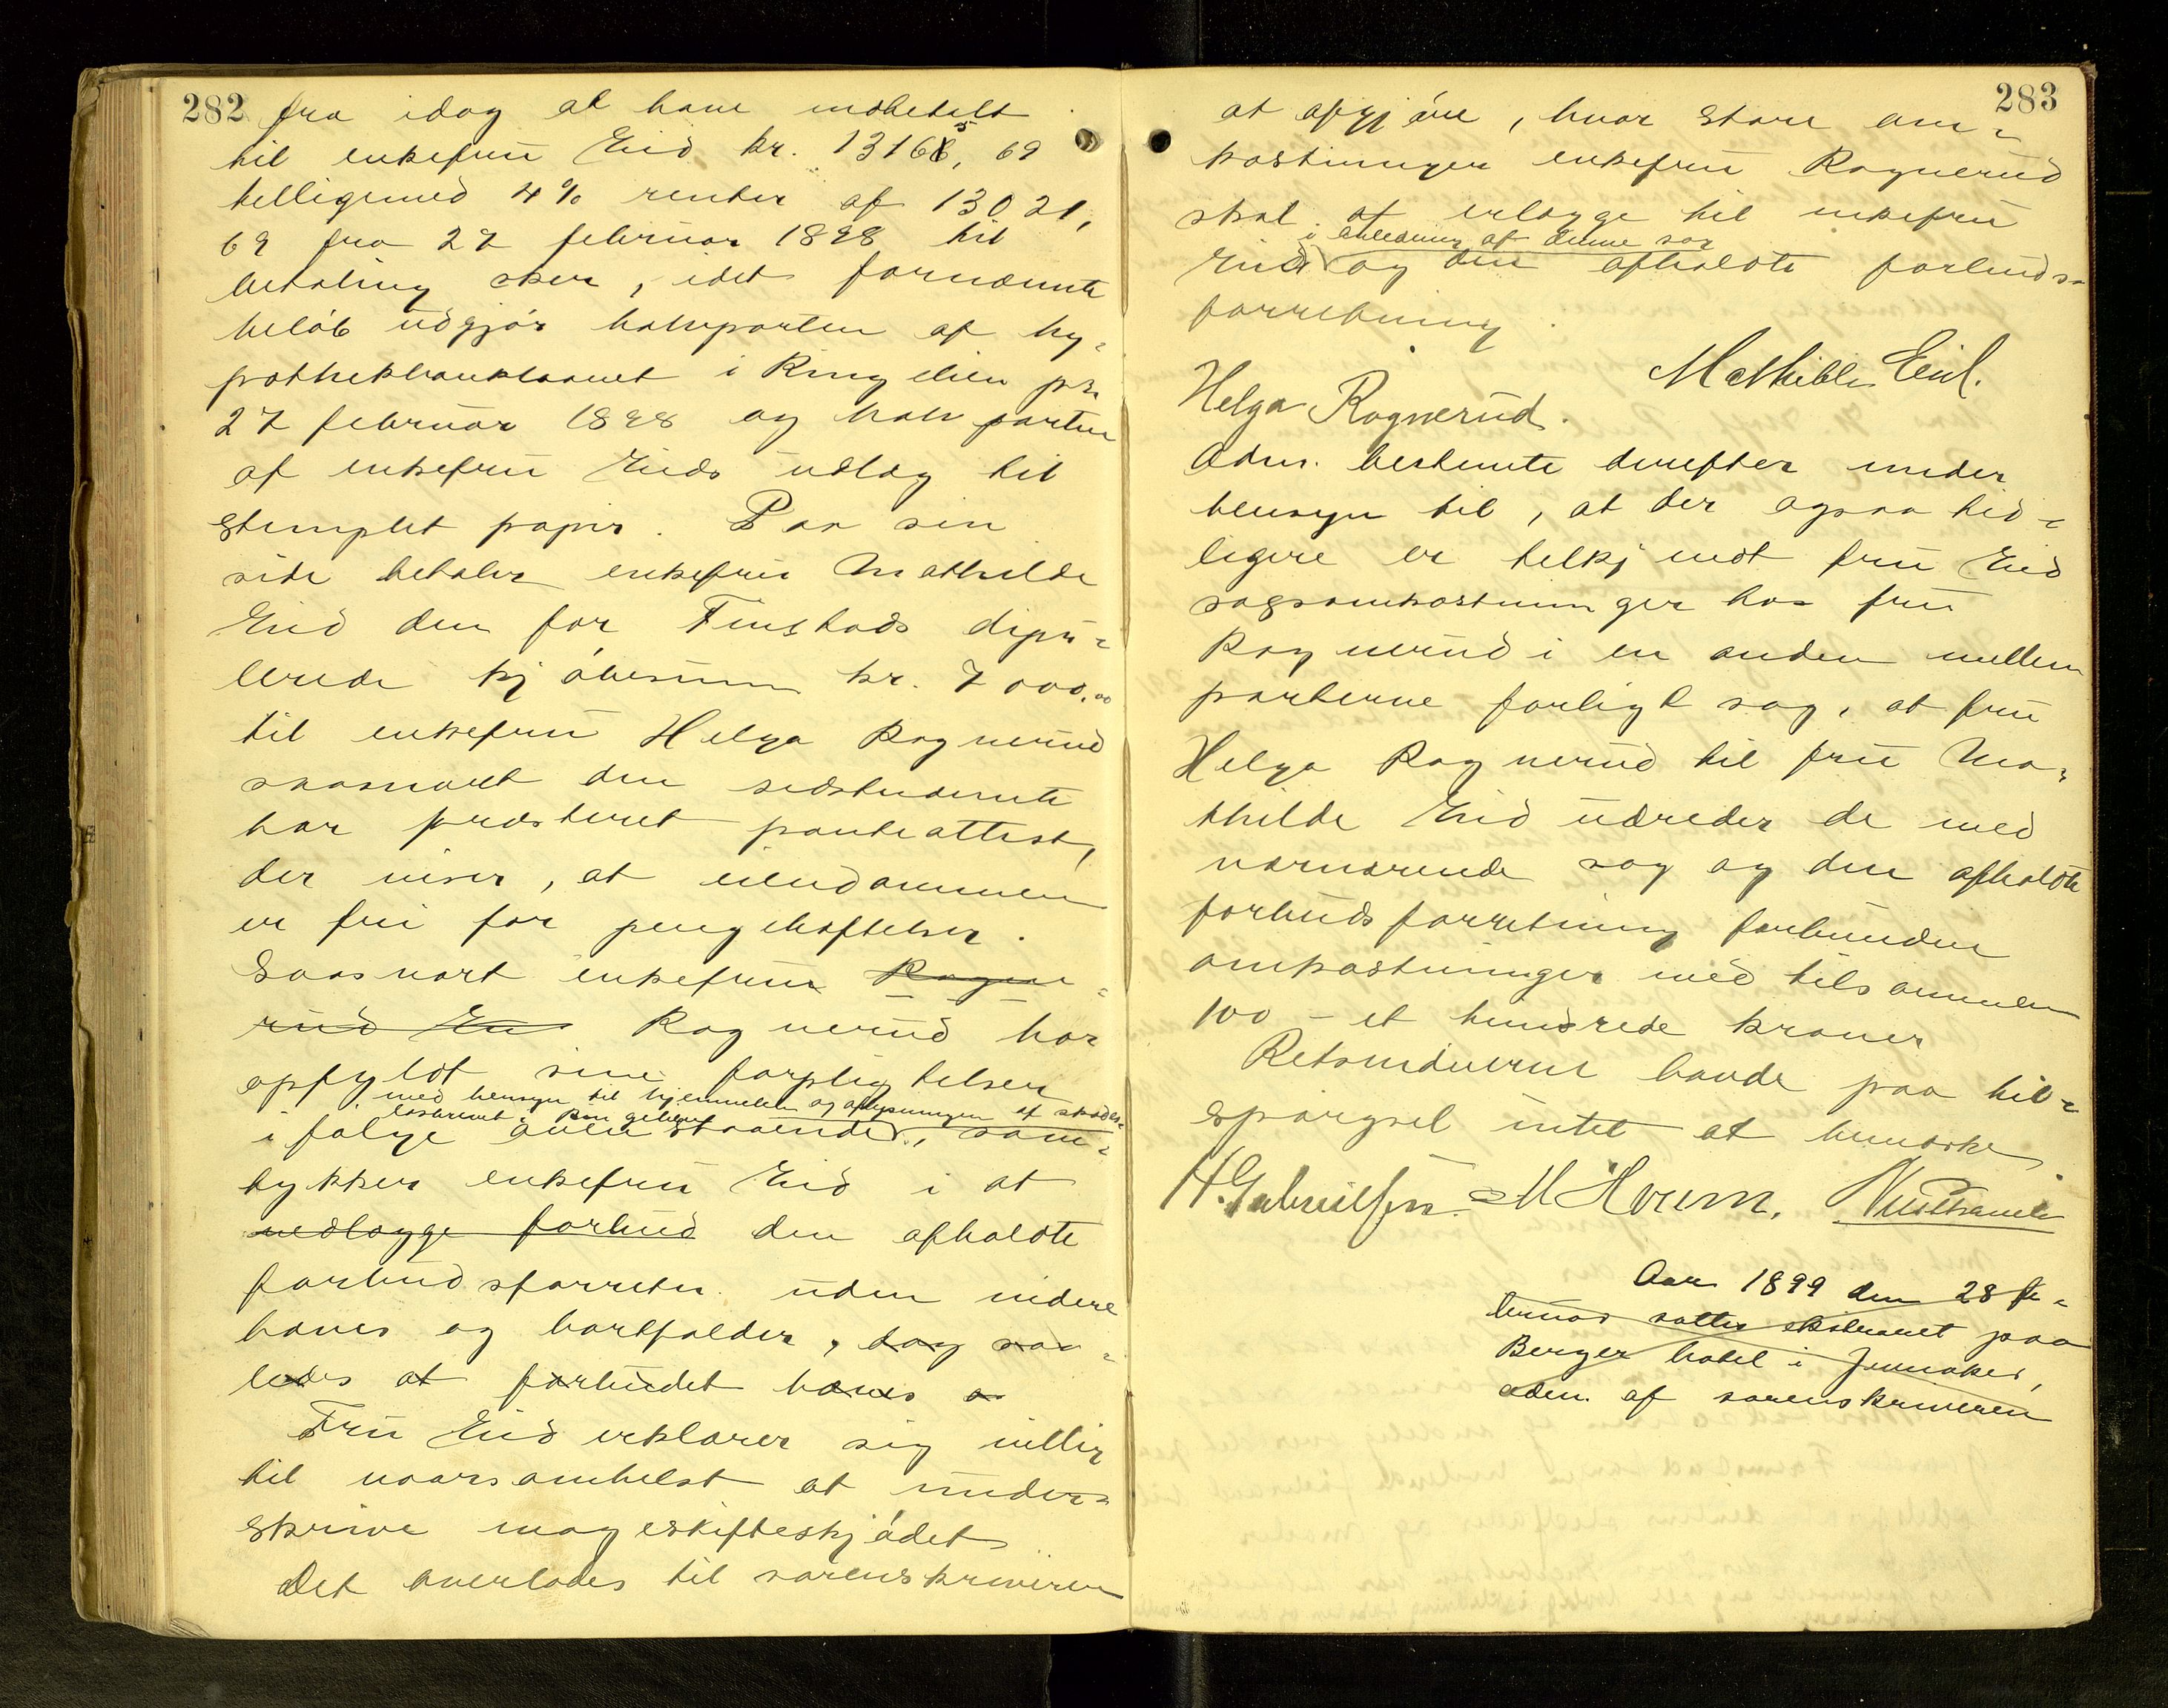 282
fra idag at have indbetalt
til enkefru Eid kr. 13165, 69
tilligemed 4% renter af 13021,
69 fra 27 februar 1898 til
betaling sker, idet fornævnte
beløb udgjør halvparten af hy-
pothekbanklaanet i Ringelien pr.
27 februar 1898 og halvparten
af enkefru Eids udlæg til
stemplet papir. Paa sin
side betaler enkefru Mathilde
Eid den for Finstads dispu-
terede kjøbesum kr. 7000.00
til enkefru Helga Rognerud
saasnart den sidstnævnte
har præsteret panteattest,
der viser, at eiendommen
er fri for pengeheftelser.
Saasnart enkefru Rogne-
rud En Rognerud har
opfyldt sine forpligtelser
med hensyn til hjemmelen og aflysningen af skades-
løsbrevet i Ringelien
i følge ovenstaaende, sam-
tykker enkefru Eid i at
nedlægge forbud den afholdte
forbudsforretn. uden videre
hæves og bortfalder, dog saa-
ledes at forbudet hæves a
Fru Eid erklærer sig villig
til naarsomhelst at under-
skrive mageskifteskjødet
Det overlades til sorenskriveren
283
at afgjøre, hvor store om-
kostninger enkefru Rognerud
skal at erlægge til enkefru
i anledning af denne sag
Eid og den afholdte forbuds-
forretning.
Mathilde Eid.
Helga Rognerud.
Adm. bestemte derefter under
hensyn til, at der ogsaa tid-
ligere er tilkjendt fru Eid
sagsomkostninger hos fru
Rognerud i en anden mellem
parterne forligt sag, at fru
Helga Rognerud til fru Ma-
thilde Eid udreder de med
nærværende sag og den afholdte
forbudsforretning forbundne
omkostninger med tilsammen
100 - et hundrede kroner
Retsvidnerne havde paa til-
spørgsel intet at bemærke
H. Gabrielsen. M Horum.
Aar 1899 den 28 fe-
bruar sattes ekstraret paa
Berger hotel i Jevnaker,
adm. af sorenskriveren